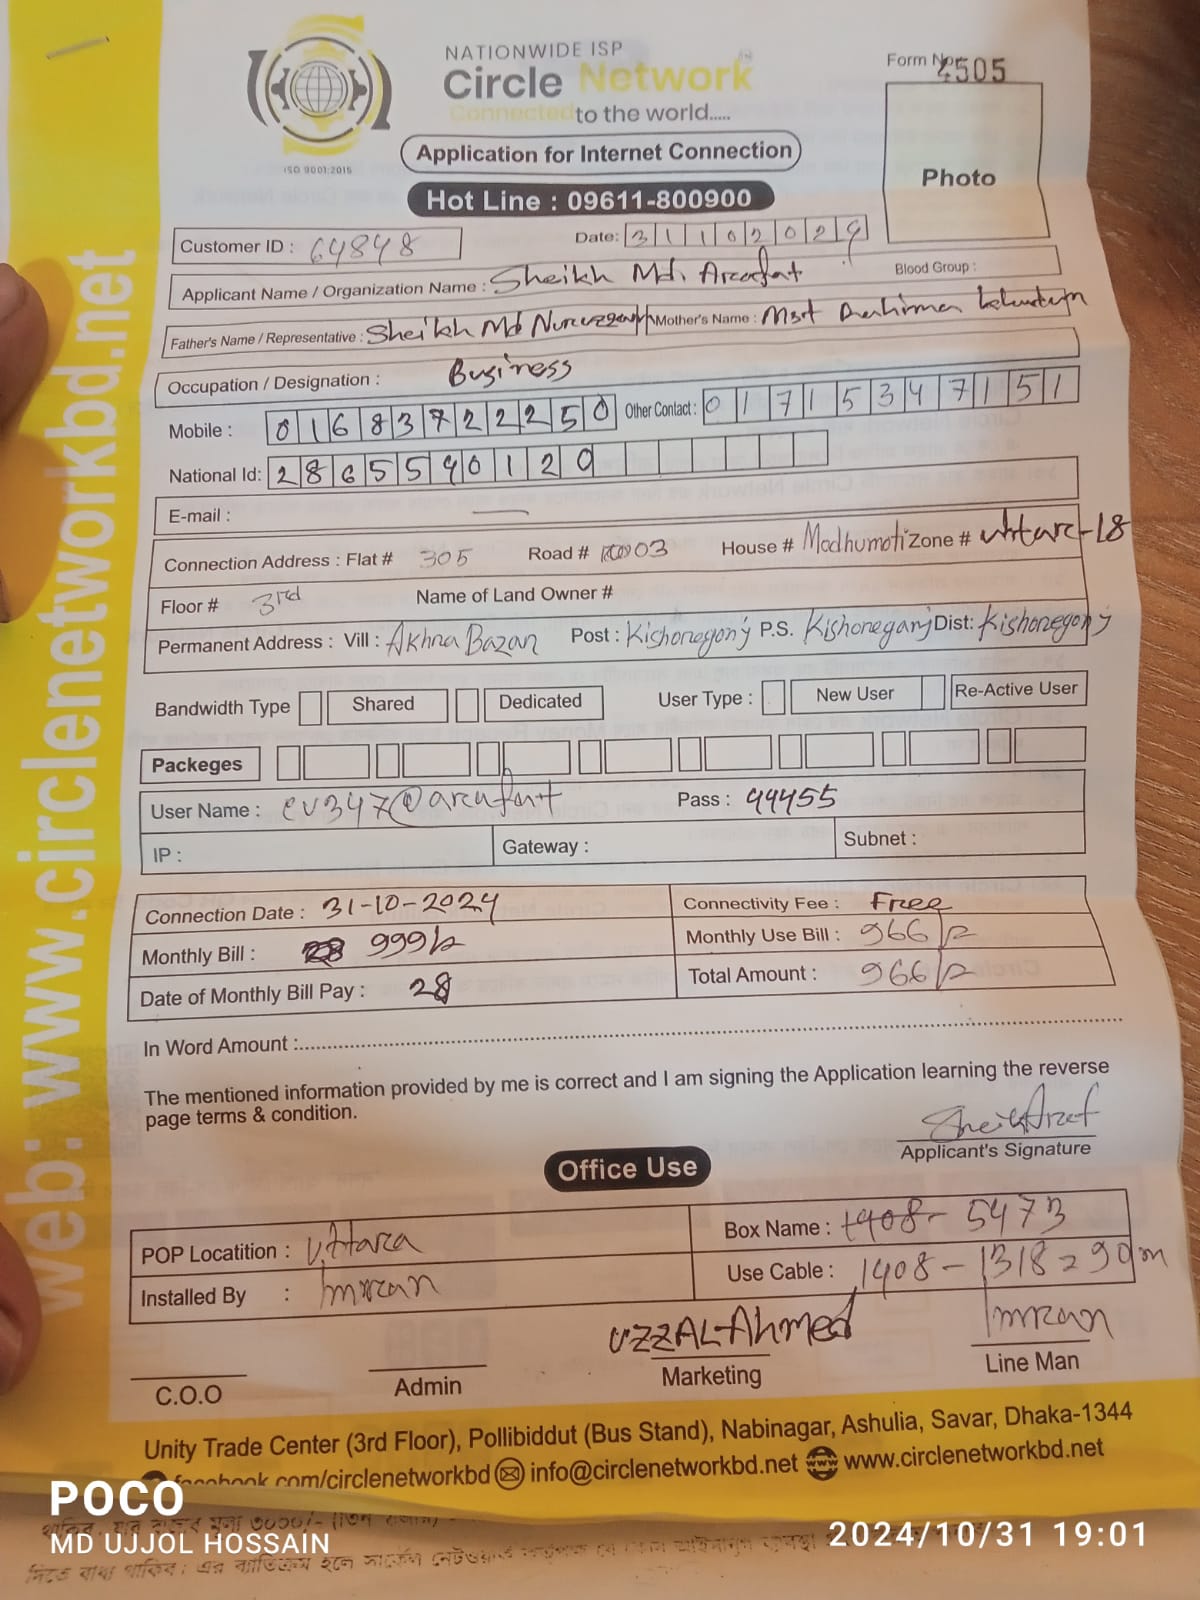 web: www.circlenetworkbd.net
NATIONWIDE ISP
Circle Network
Connected to the world.....
ISO 9001:2015
Application for Internet Connection
Hot Line : 09611-800900
Form No. 4505
Photo
Customer ID : 64848
Date: 31102024
Applicant Name / Organization Name : Sheikh Md. Arafat Blood Group :
Father's Name / Representative : Sheikh Md Mother's Name : Mst
Occupation / Designation : Business
Mobile : 01683722250 Other Contact : 01715347151
National Id: 2865590120
E-mail : —
Connection Address : Flat # 305 Road # 03 House # Madhumoti Zone # uttara-18
Floor # 3rd Name of Land Owner #
Permanent Address : Vill : Akhra Bazar Post : Kishoregonj P.S. Kishoreganj Dist: Kishoregonj
Bandwidth Type Shared Dedicated User Type : New User Re-Active User
Packeges
User Name : cv347@arafat Pass : 44455
IP : Gateway : Subnet :
Connection Date : 31-10-2024 Connectivity Fee : Free
Monthly Bill : 999/= Monthly Use Bill : 966/=
Date of Monthly Bill Pay : 28 Total Amount : 966/=
In Word Amount :
The mentioned information provided by me is correct and I am signing the Application learning the reverse
page terms & condition.
Applicant's Signature
Office Use
POP Locatition : Uttara Box Name : 1908- 5473
Installed By : Imran Use Cable : 1408 - 1318 = 90m
UZZAL-Ahmed Imran
C.O.O Admin Marketing Line Man
Unity Trade Center (3rd Floor), Pollibiddut (Bus Stand), Nabinagar, Ashulia, Savar, Dhaka-1344
facebook.com/circlenetworkbd info@circlenetworkbd.net www.circlenetworkbd.net
POCO
MD UJJOL HOSSAIN
2024/10/31 19:01